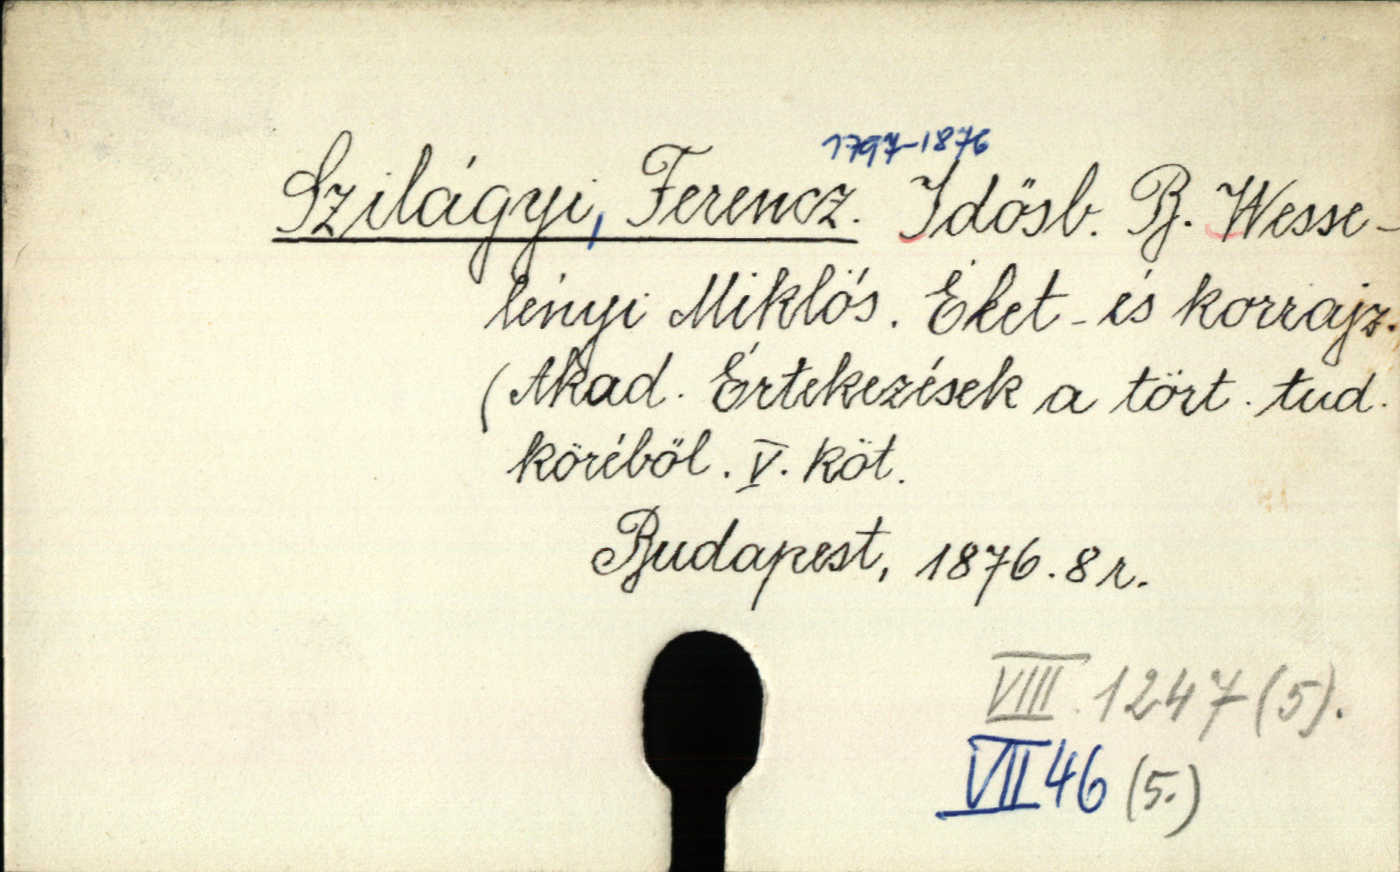 1797-1876
Szilágyi, Ferencz. Idősb. B. Wesse-
lényi Miklós. Élet- és korrajz.
(Akad. Értekezések a tört. tud.
köréből. V. köt.
Budapest, 1876. 8 r.
VIII. 1247 (5).
VII 46 (5.)